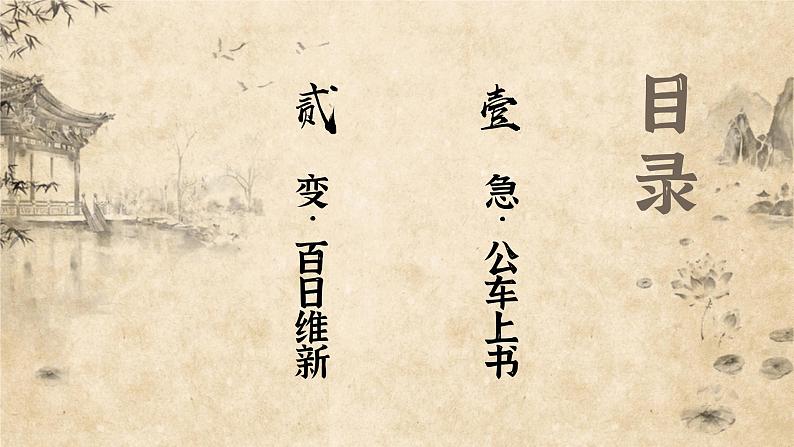 目录
壹 急·公车上书
贰 变·百日维新